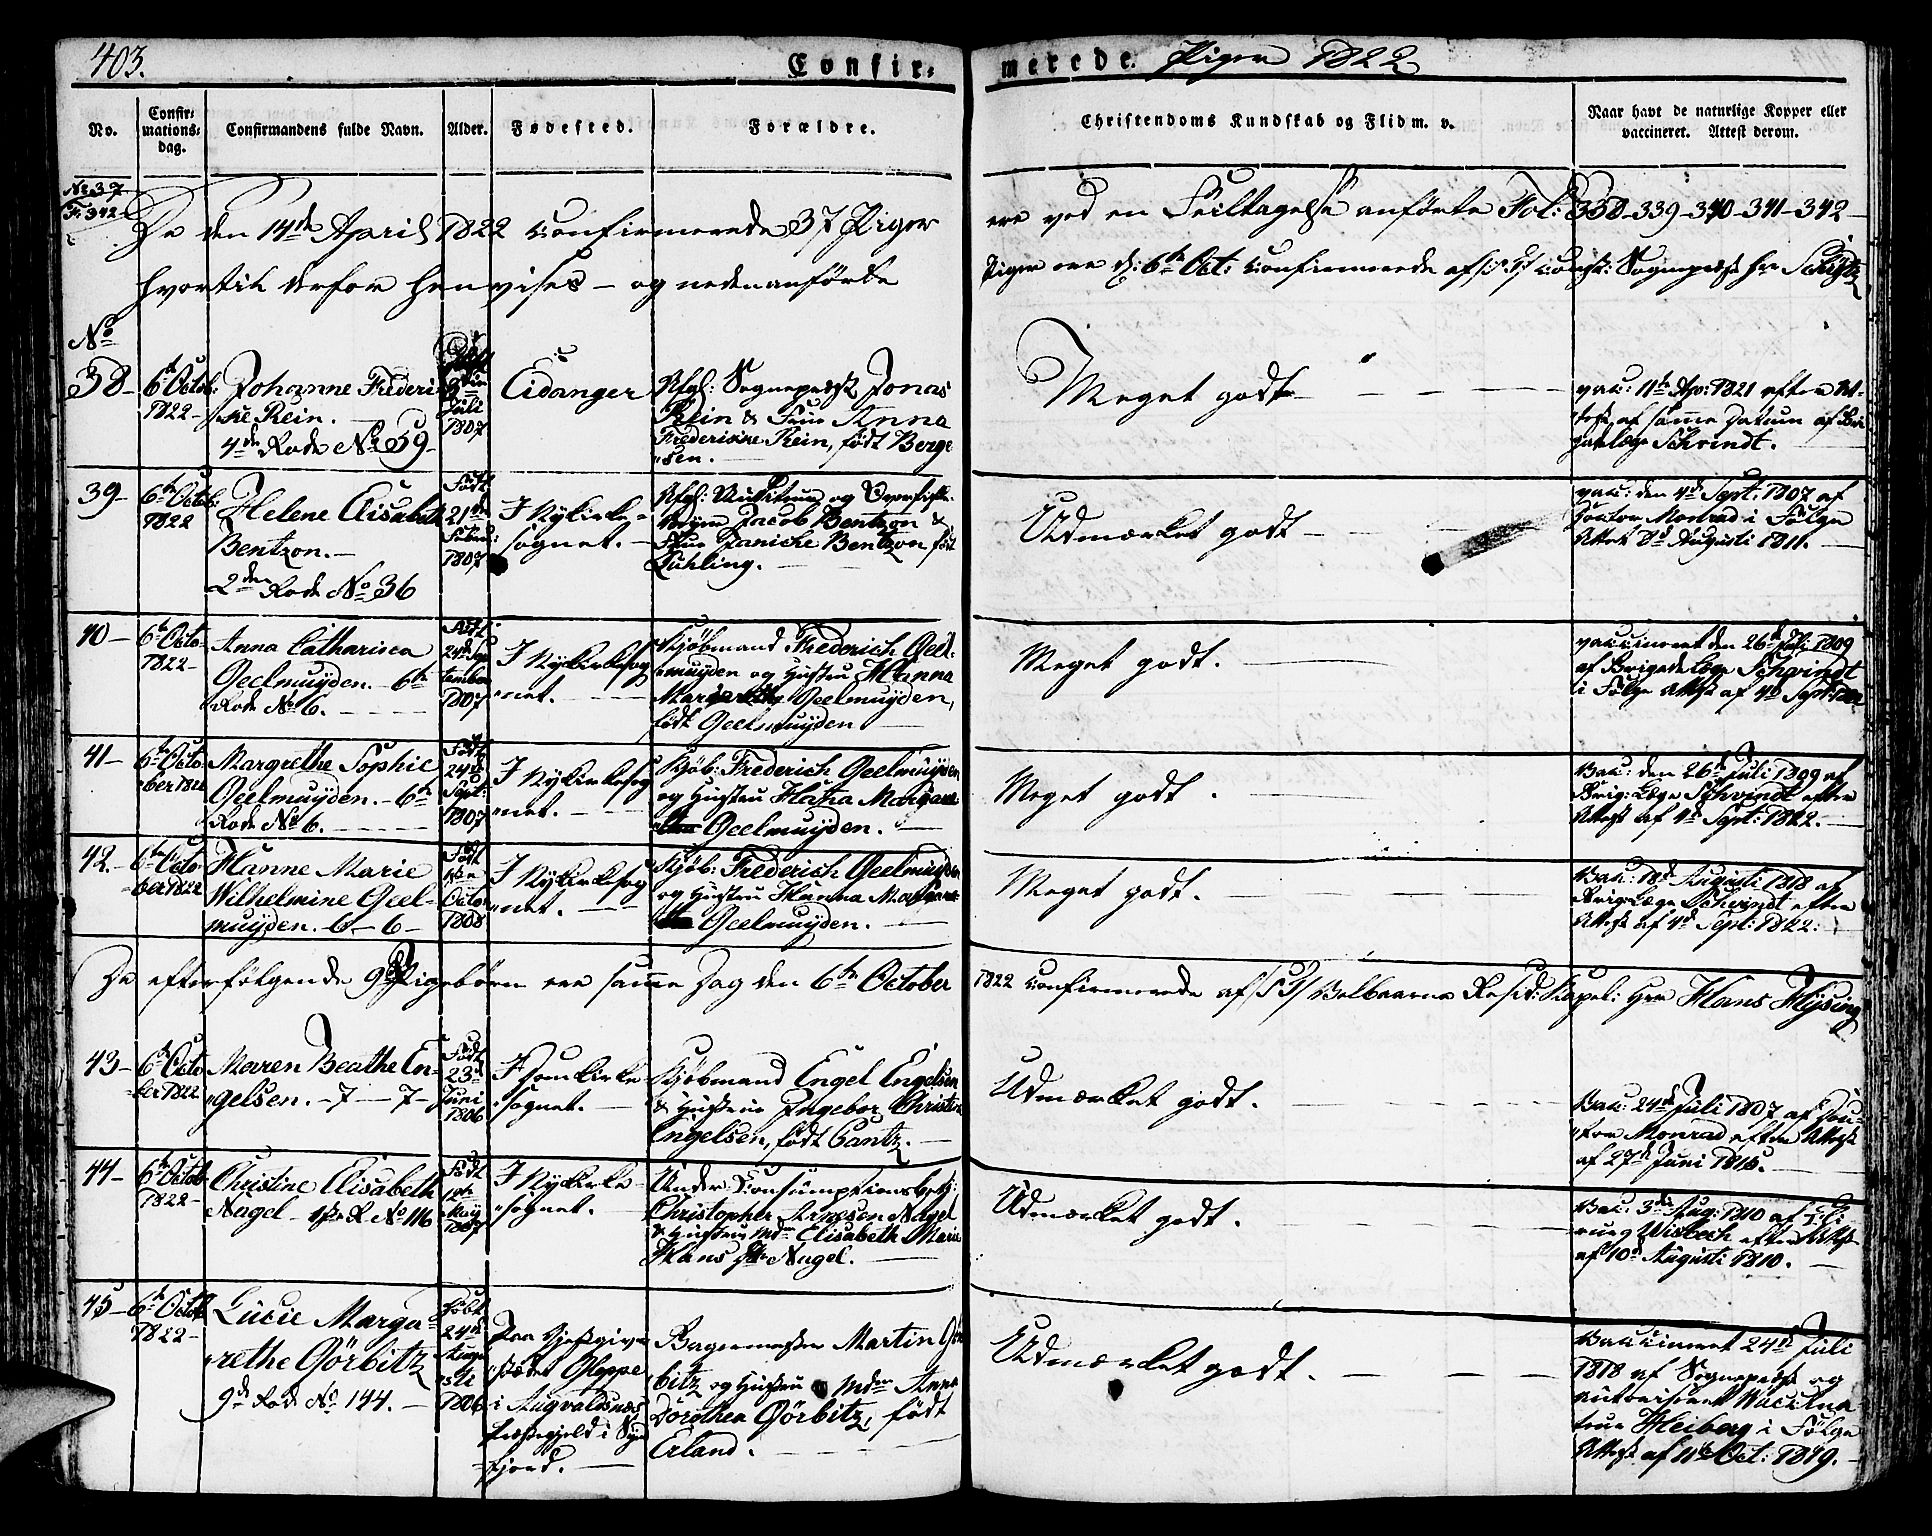 403.
Confirmerede Piger 1822
No.
Confirmations-dag.
Confirmandens fulde Navn.
Alder.
Fødested.
Forældre.
Christendoms Kundskab og Flid m. v.
Naar havt de naturlige Kopper eller vaccineret. Attest derom.
No 37
F. 342
De den 14de April 1822 confirmerede 37 Piger ere ved en Feiltagelse anførte Fol: 338-339-340-341-342
hvortil derfor henvises – og nedenanførte Piger ere d: 6te Oct: confirmerede af S. T. Sognepræst Hr
No
38 –
6te Octob: 1822 –
Johanne Frederi-
ke Rein. –
4de Rode No 39 –
Juli 1807
Eidanger
Sognepræst Jonas
Rein & Frue Anna
Frederikke Rein, født Borge-
sen. –
Meget godt
vac: 11te Apr: 1821 efter At-
test af samme Datum af Bri-
gadelæge Schvindt.
39 –
6te Octob: 1822
Helene Elisabeth
Bentzon. –
2den Rode No 36
Født 21de Febru: 1807
I Nykirke-
sognet. –
og
Jacob Bentzon &
Frue Janiche Bentzon født
Kühling. –
Udmærket godt –
vac: den 4de Sept: 1807 af
Doctor Monrad i Følge
Attest 8de Augusti 1811. –
40 –
6te Octo- 1822 –
Anna Catharina
Geelmuyden. – 6te
Rode No 6. –
Født 24de Sep-
tember 1807
I Nykirkesog-
net. –
Kjøbmand Frederich Geel-
muyden og Hustru Hanna
Geelmuyden,
født Geelmuyden –
Meget godt. –
vaccineret den 26de Juli 1809
af Brigade Læge Schvindt
i Følge Attest af 4de Sept:
41 –
6te Octo-
ber 1822
Margrethe Sophie
Geelmuyden. – 6te
Rode No 6. –
Født 24de Sept: 1807
I Nykirkesog-
net. –
Kjøb: Frederich Geelmuyden
og Hustru Hanna
Geelmuyden. –
Meget godt. –
Vac: den 26de Juli 1809 af
Brig: Læge Schvindt efter
Attest af 4de Sept: 1822. –
42. –
6te Octo-
ber 1822
Hanne Marie
Wilhelmine Geel-
muyden. – 6 – 6 –
Født Octo 1808
I Nykirkesog-
net. –
Kjøb: Frederich Geelmuyden
og Hustru Hanna
Geelmuyden. –
Meget godt. –
Vac: 18de Augusti 1818 af
Brig: Læge Schvindt efter
Attest af 4de Sept: 1822.
De efterfølgende 9 Pigebørn ere samme Dag den 6te October 1822 confirmerede af S. T. Resid: Kapel: Herr Hans Hysing
43 –
6te Octo-
ber 1822
Maren Beathe En-
gelsen. – 7 – 7 –
Født 23de Juni 1806
I Domkirke-
sognet. –
Kjøbmand Engel Engelsen
& Hustrue Ingebor Christine
Engelsen, født Gantz. –
Udmærket godt. –
Vac: 24de Juli 1807 af Doc-
tor Monrad efter Attest
af 27de Juni
44 –
6te Octob 1822 –
Christine Elisabeth
Nagel – 1ste R. No 116
Født 1ste May 1807
I Nykirke-
sognet. –
Under Consumptionsbetj:
Christopher Arnesen Nagel
& Hustrue Mdm Elisabeth Marie
Hans Nagel. –
Udmærket godt. –
Vac: 3de Aug: 1810 af Chi-
rurg Wisbech efter Attest
af 10de Augusti 1810. –
45 –
6te Octob 1822 –
Lucie Marga-
rethe Görbitz
9de Rode No 144. –
Født 24de Augu-
sti 1806
Paa Gjestgiver-
stedet Gloppe
i Augvaldsnæs
Præstegjeld i
fjord. –
Bagermester Martin Gör-
bitz og Hustru Mdm Anna
Dorothea Görbitz, født
Erland. –
Udmærket godt. –
Vaccineret 24de Juli
1818 af Sognepræst og
autoriseret Vaccina-
teur Heiberg i Følge
Attest af 11te Oct: 1819. –